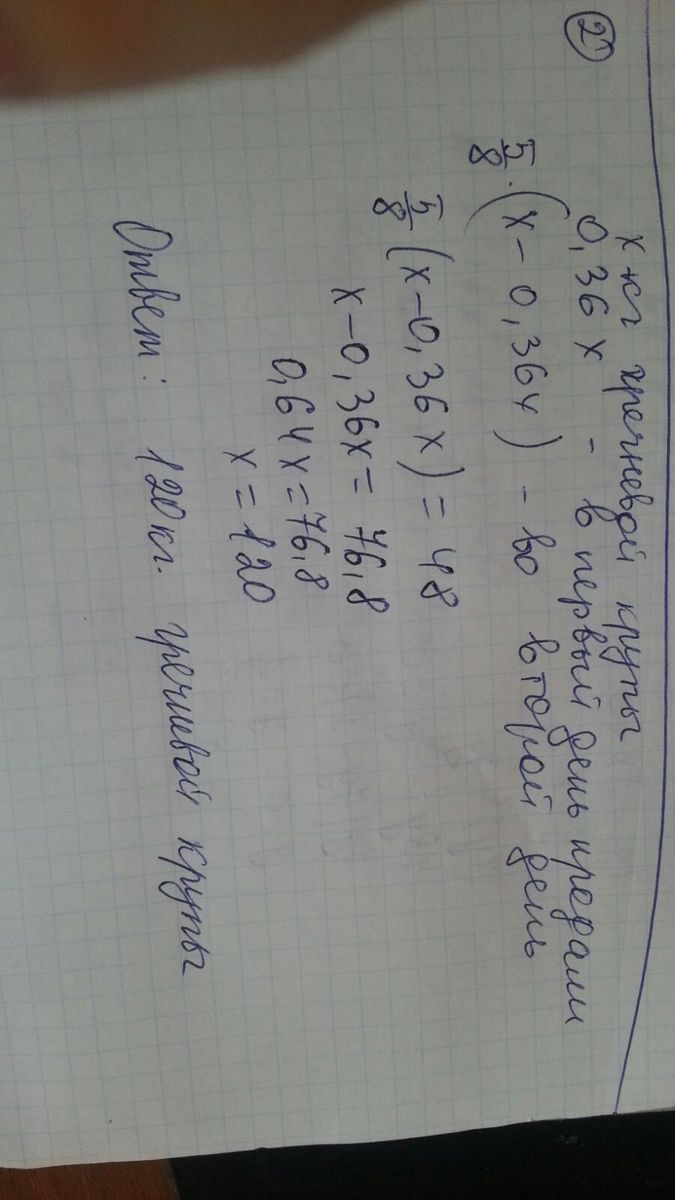 2
х кг гречневой крупы
0,36 х - в первый день продали
5/8 · (х - 0,36х) - во второй день
5/8 (х - 0,36 х) = 48
х - 0,36х = 76,8
0,64х = 76,8
х = 120
Ответ: 120 кг. гречневой крупы